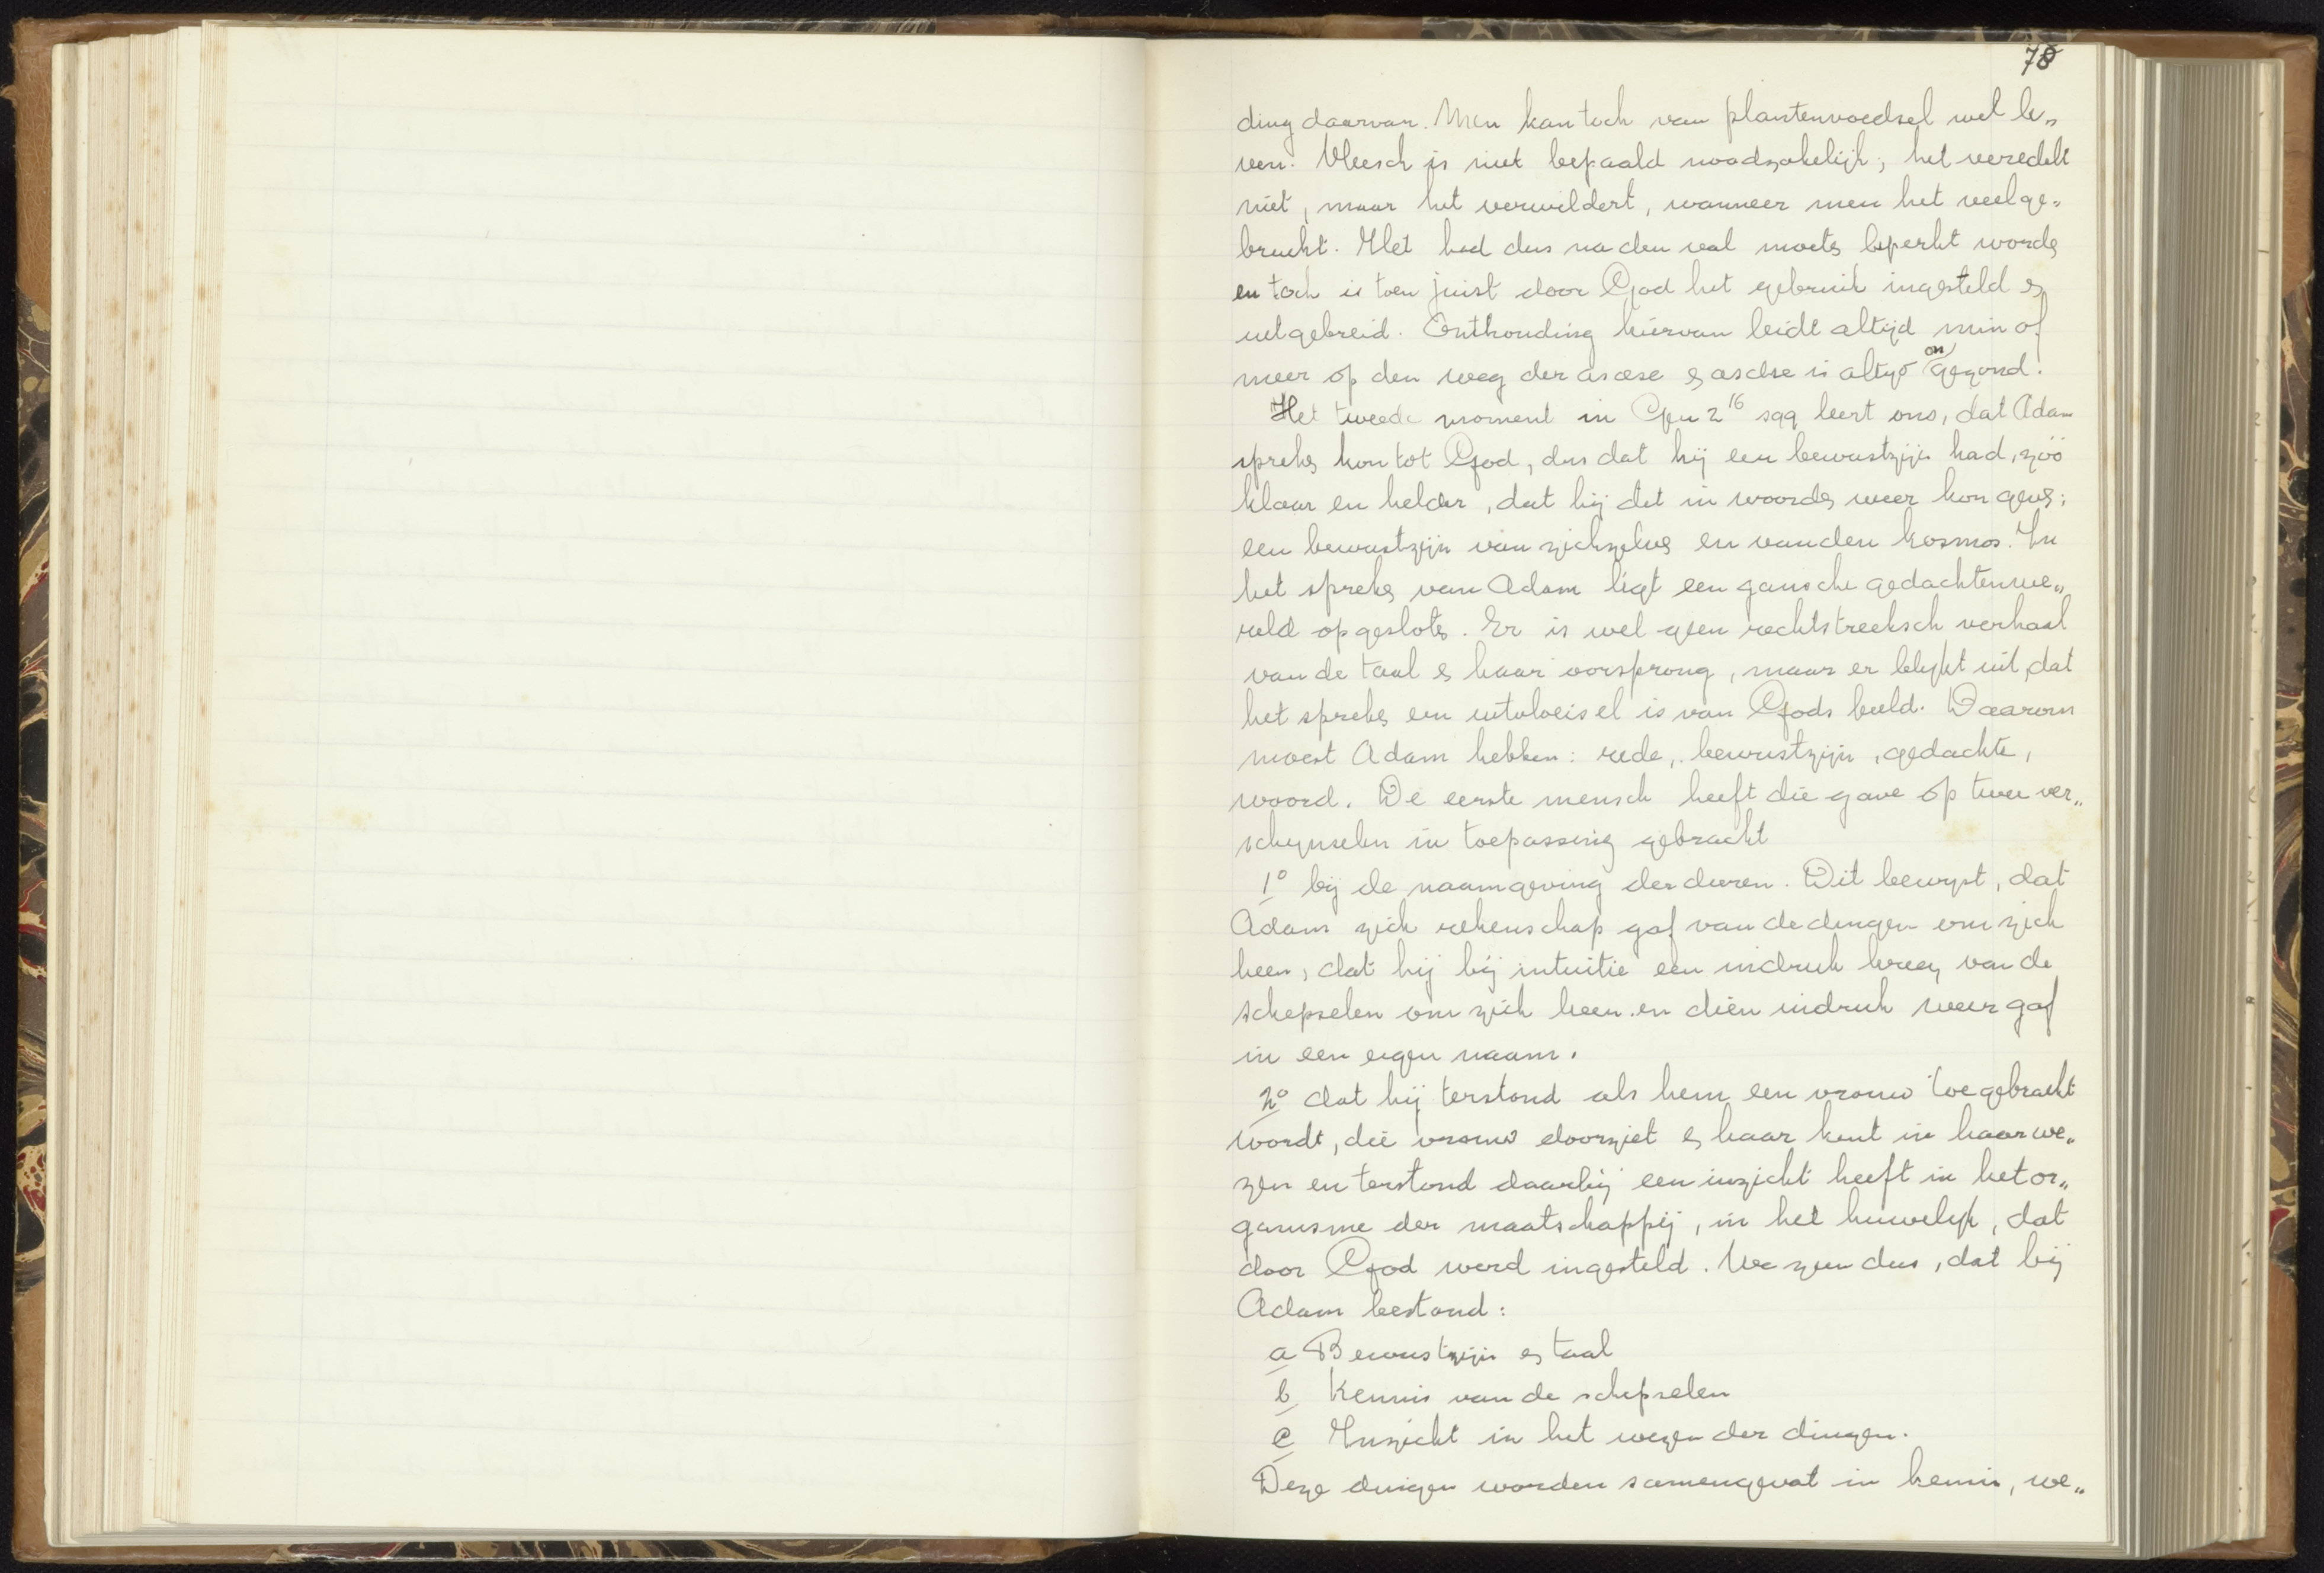 78
ding daarvan. Men kan toch van plantenvoedsel wel le„
ven. Vleesch is niet bepaald noodzakelijk; het veredelt
niet, maar het verwildert, wanneer men het veel ge„
bruikt. Het had dus na den val moeten beperkt worden
en toch is toen juist door God het gebruik ingesteld en
uitgebreid. Onthouding hiervan leidt altijd min of
meer op den weg der ascese en ascese is altijd ongezond.
Het tweede moment in Gen 2 16 sqq leert ons, dat Adam
spreken kon tot God, dus dat hij een bewustzijn had, zóó
klaar en helder, dat hij dit in woorden weer kon geven;
een bewustzijn van zichzelven en van den kosmos. In
het spreken van Adam ligt een gansche gedachtenwe„
reld opgesloten. Er is wel geen rechtstreeksch verhaal
van de taal en haar oorsprong, maar er blijkt uit, dat
het spreken een uitvloeisel is van Gods beeld. Daarom
moest Adam hebben: rede, bewustzijn, gedachte,
woord. De eerste mensch heeft die gave op twee ver„
schijnselen in toepassing gebracht
1° bij de naamgeving der dieren. Dit bewijst, dat
Adam zich rekenschap gaf van de dingen om zich
heen, dat hij bij intuitie een indruk kreeg van de
schepselen om zich heen en dien indruk weer gaf
in een eigen naam.
2° dat hij terstond als hem een vrouw toegebracht
wordt, die vrouw doorziet en haar kent in haar we„
zen en terstond daarbij een inzicht heeft in het or„
ganisme der maatschappij, in het huwelijk, dat
door God werd ingesteld. We zien dus, dat bij
Adam bestond:
a Bewustzijn en taal
b Kennis van de schepselen
c Inzicht in het wezen der dingen.
Deze dingen worden samengevat in kennis, we„